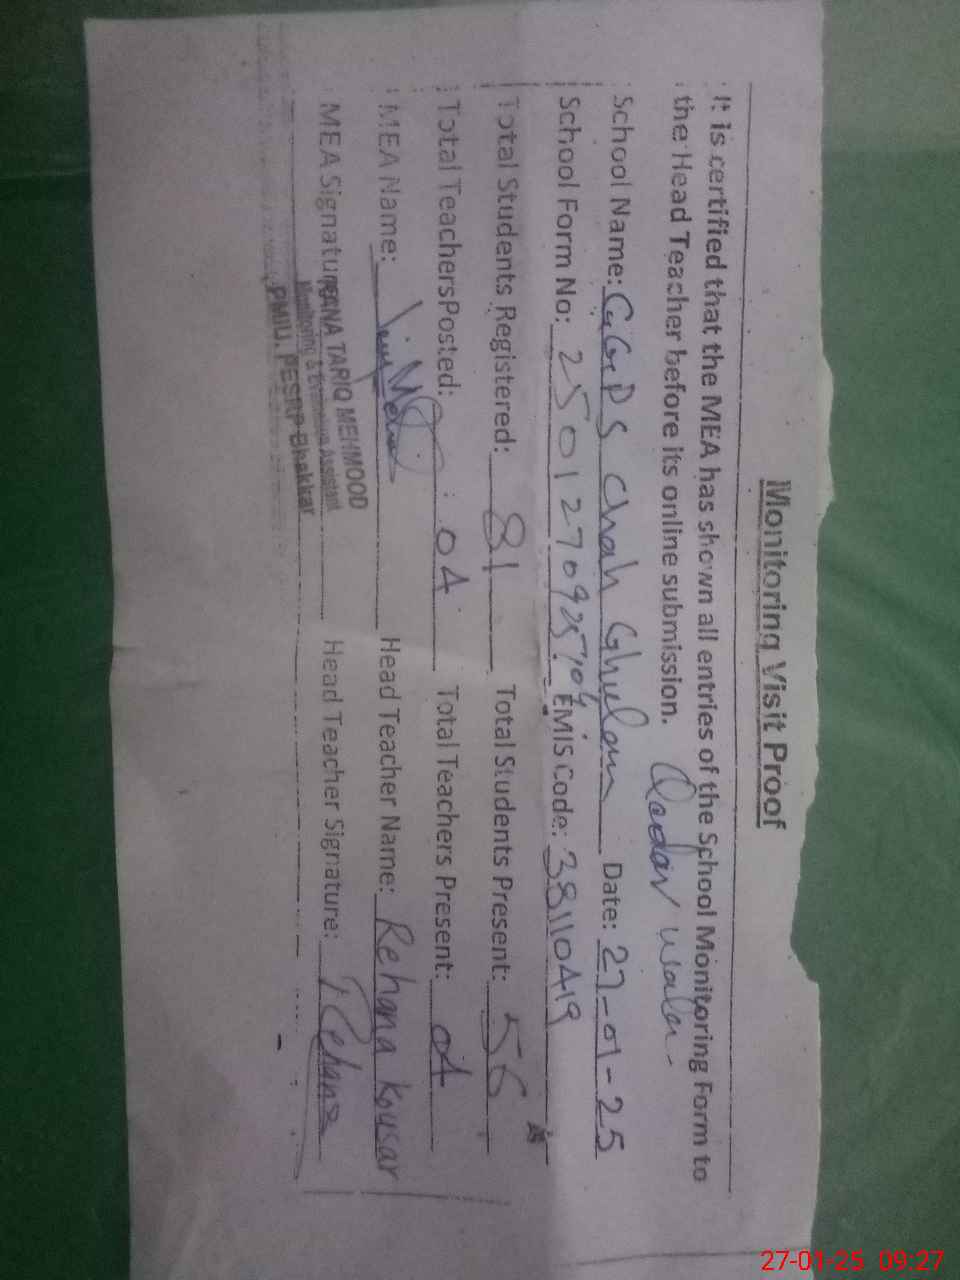 Monitoring Visit Proof
It is certified that the MEA has shown all entries of the School Monitoring Form to
the Head Teacher before its online submission.
Qadar wala-
School Name: GGPS Chah Ghulam Date: 27-01-25
School Form No: 25012709257104 EMIS Code: 38110419
Total Students Registered: 81 Total Students Present: 56
Total TeachersPosted: 04 Total Teachers Present: 04
MEA Name: Head Teacher Name: Rehana Kousar
MEA Signature: Head Teacher Signature: Rehana
RANA TARIQ MEHMOOD
Monitoring & Evaluation Assistant
PMIU. PESRP Bhakkar
27-01-25 09:27